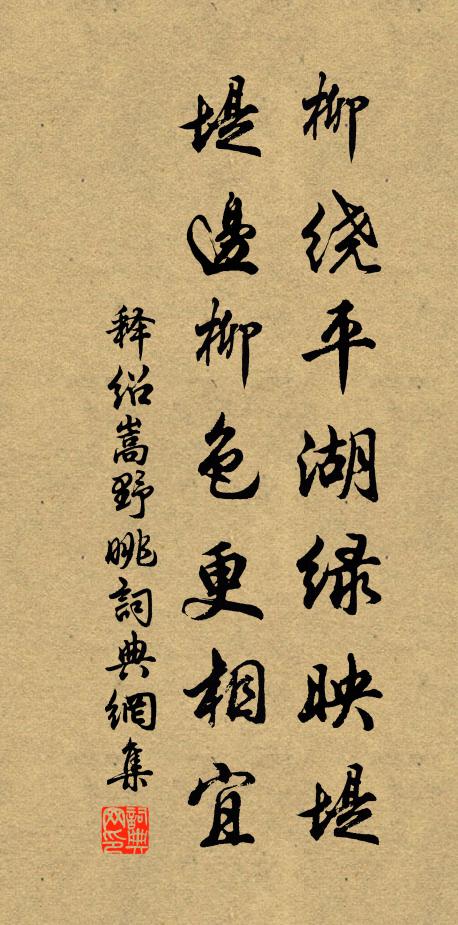 柳绕平湖绿映堤
堤邊柳色更相宜
释绍嵩野眺詞典網集
詞典网印